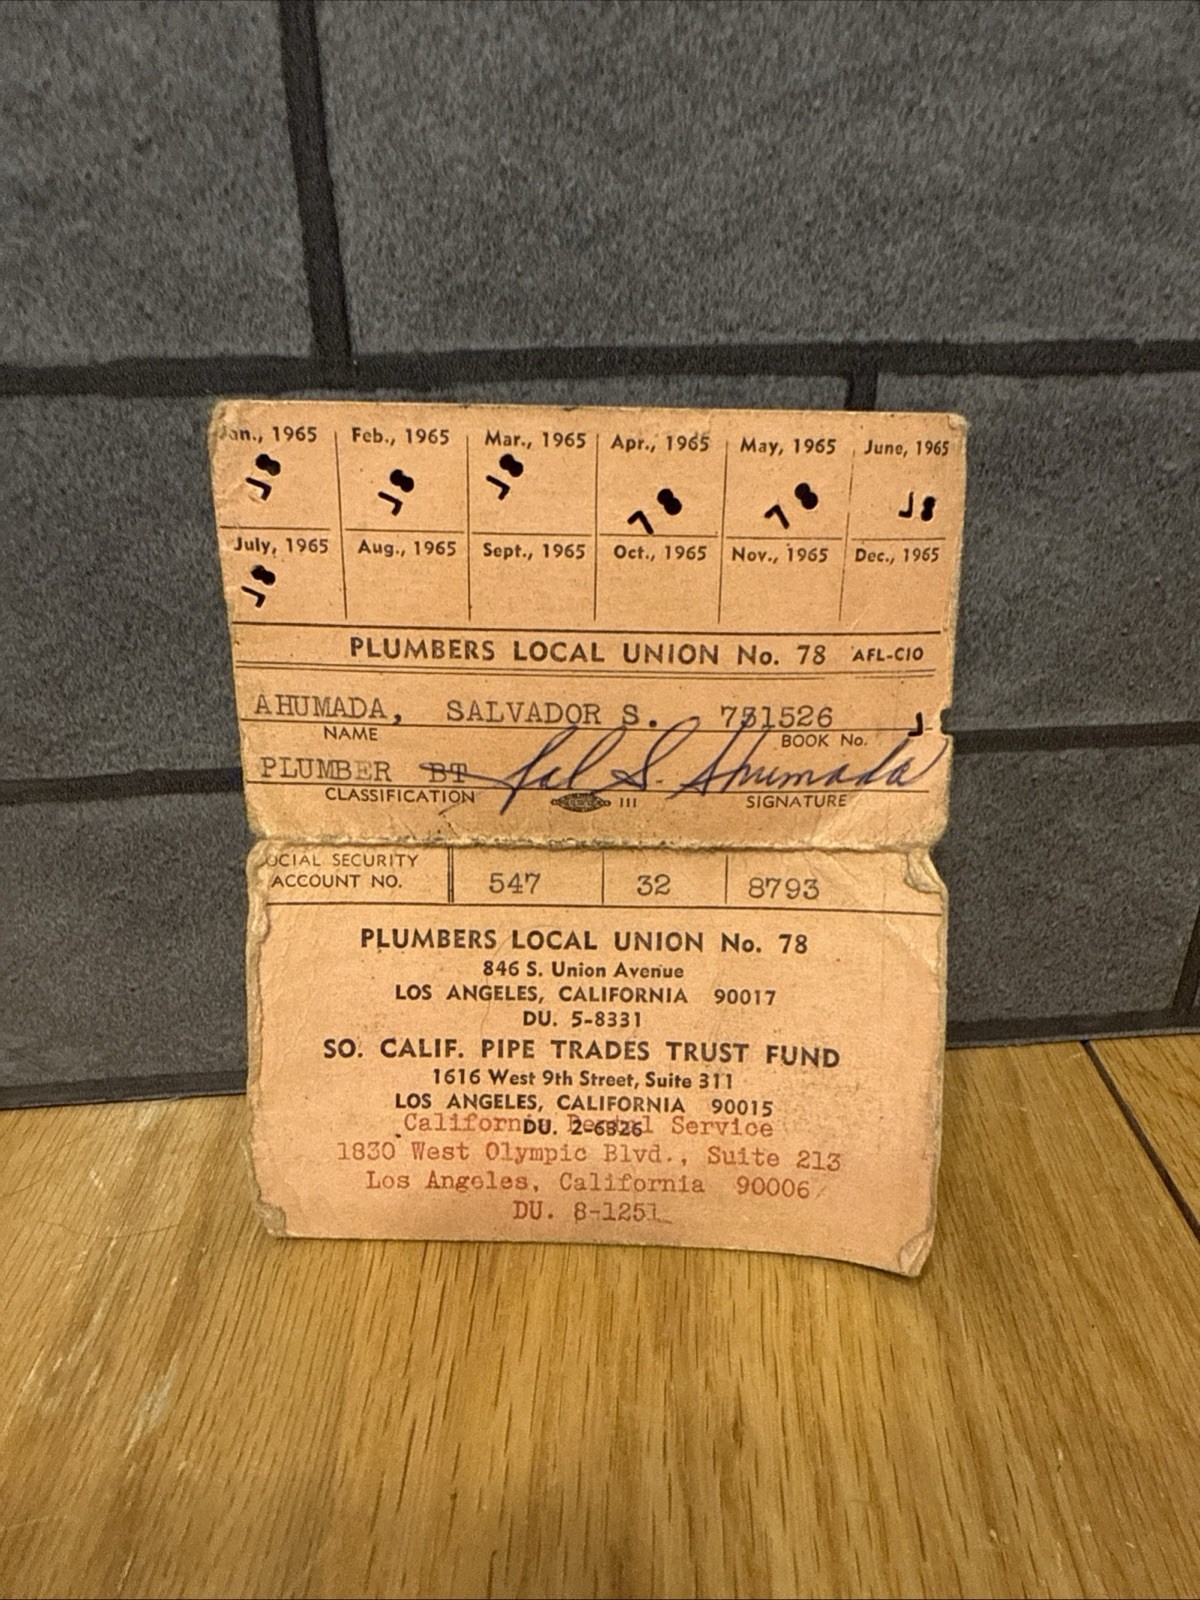 Jan., 1965 Feb., 1965 Mar., 1965 Apr., 1965 May, 1965 June, 1965
78 78 78 78 78 78
July, 1965 Aug., 1965 Sept., 1965 Oct., 1965 Nov., 1965 Dec., 1965
78
PLUMBERS LOCAL UNION No. 78 AFL-CIO
AHUMADA, SALVADOR S. 751526
NAME BOOK No.
PLUMBER BT Sal S. Ahumada
CLASSIFICATION III SIGNATURE
OCIAL SECURITY
ACCOUNT NO. 547 32 8793
PLUMBERS LOCAL UNION No. 78
846 S. Union Avenue
LOS ANGELES, CALIFORNIA 90017
DU. 5-8331
SO. CALIF. PIPE TRADES TRUST FUND
1616 West 9th Street, Suite 311
LOS ANGELES, CALIFORNIA 90015
DU. 2-6326
California Dental Service
1830 West Olympic Blvd., Suite 213
Los Angeles, California 90006
DU. 8-1251